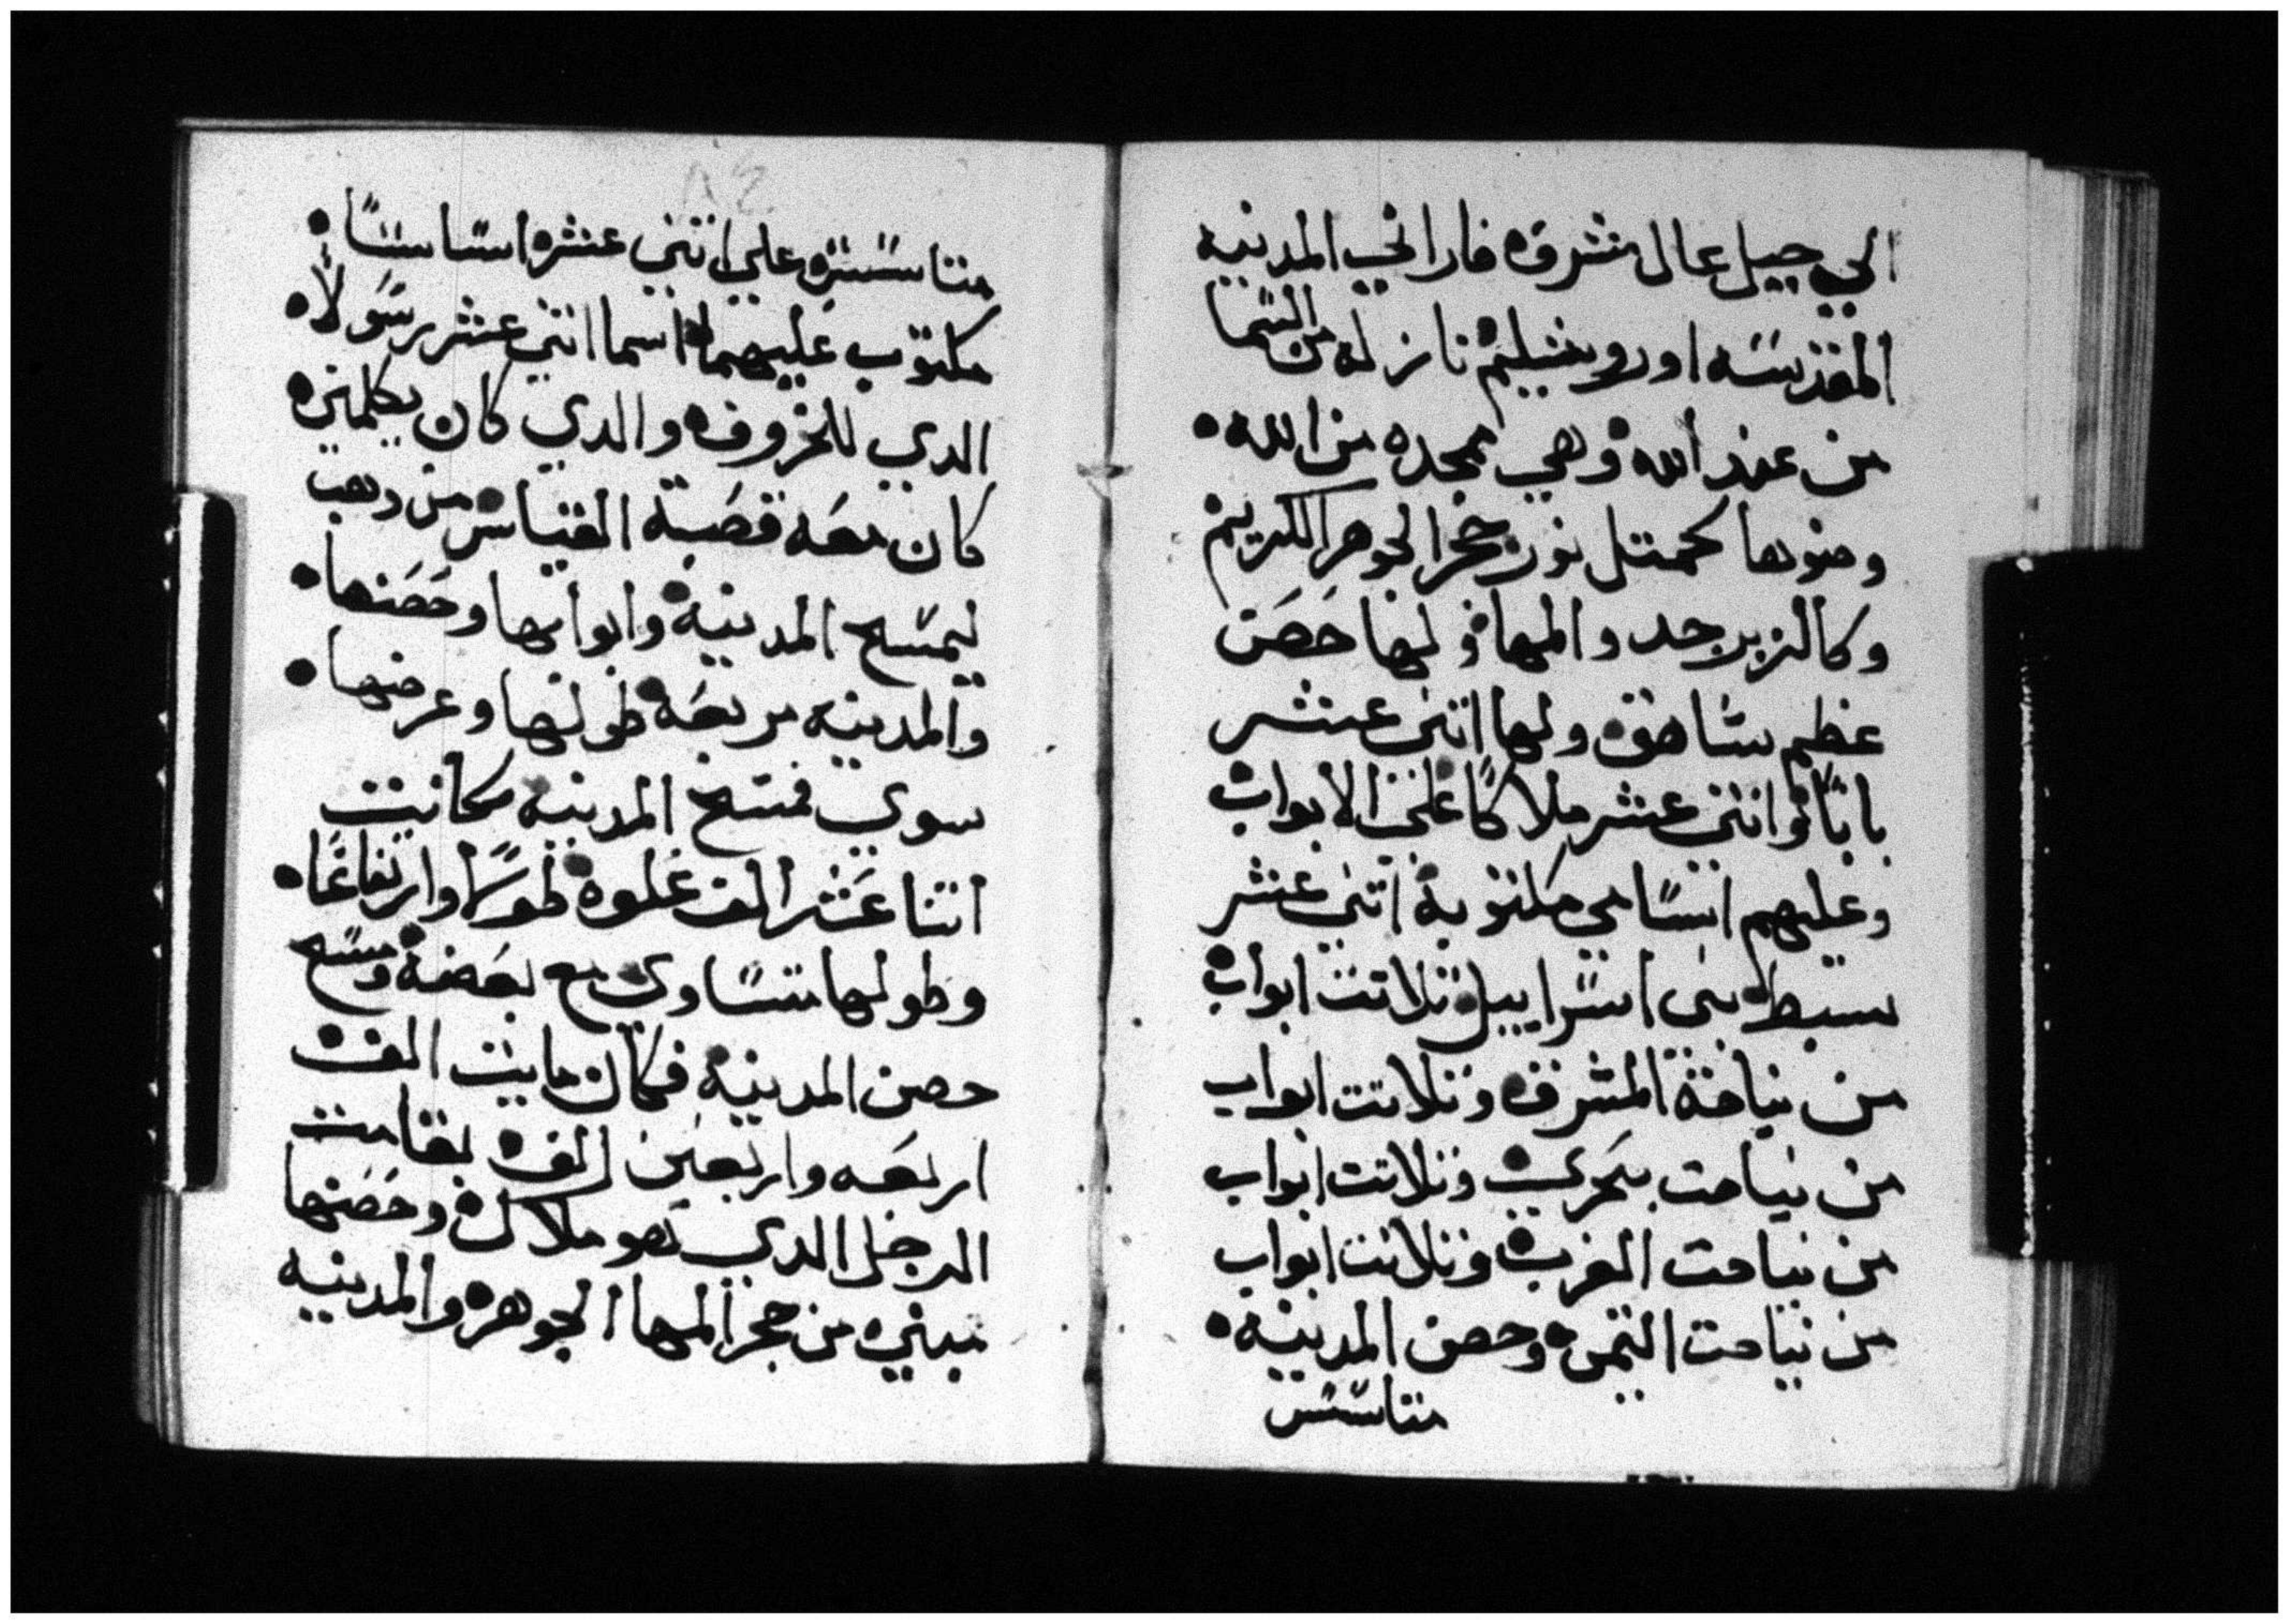 الي جبل عال مشرق فاراني المدينه
المقدسه اورويشليم نازله من السما
من عند الله وهي ممجده من الله
وضوها كمتل نور حجر الجوهر الكريم
وكالزبرجد والمها ولها حصن
عظيم شاهق ولها اتني عشر
بابًا واتني عشر ملاكًا علي الابواب
وعليهم اسامي مكتوبة اتني عشر
سبط بني اسراييل تلاتت ابواب
من ناحية المشرق وتلاتت ابواب
من ناحت بحري وتلاتت ابواب
من ناحت الغرب وتلاتت ابواب
من ناحت التيمن وحصن المدينه
متاسس
متاسسه علي اتني عشر اساسًا
مكتوب عليهم اسما اتني عشر رسولا
الدي للخروف والدي كان يكلمني
كان معه قصبة القياس من دهب
ليمسح المدينة وابوابها وحصنها
والمدينه مربعة طولها وعرضها
سوي فمسح المدينة فكانت
اتنا عشر الف غلوه طولا وارتفاعًا
وطولها متساوي مع بعضه ومسح
حصن المدينه فكان مايت الف
اربعه واربعين الف بقامت
الرجل الدي هو ملاك وحصنها
مبني من حجر المها الجوهر والمدينه